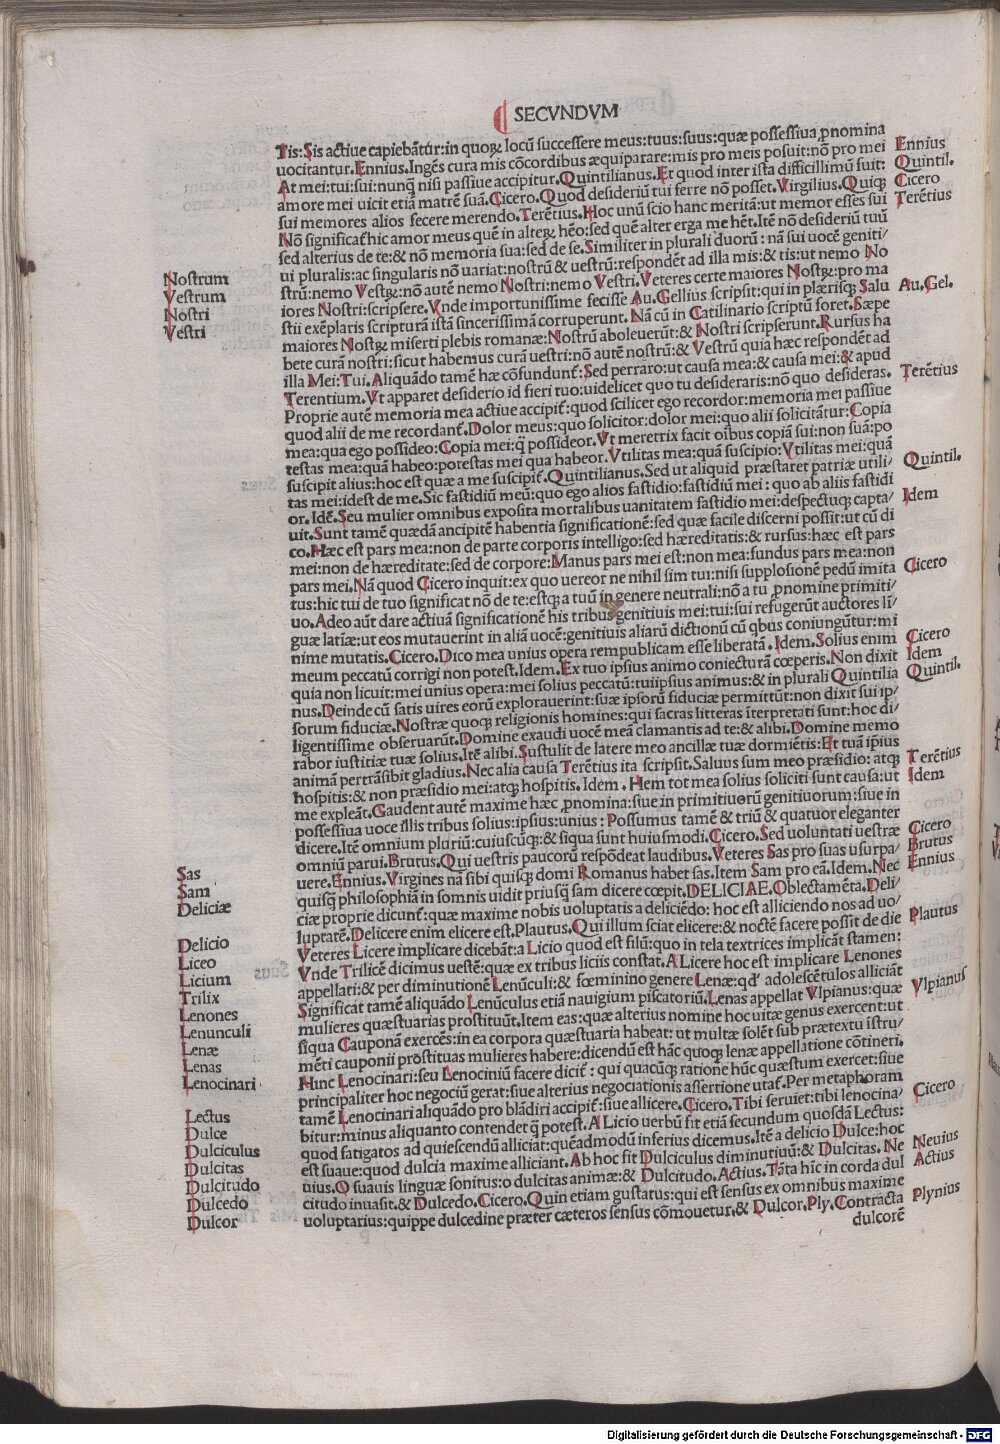 SECVNDVM
Tis:Sis actiue capiebãtur:in quoꝝ locũ successere meus:tuus:suus:quæ possessiua ꝓnomina
uocitantur.Ennius.Ingẽs cura mis cõcordibus æquiparare:mis pro meis posuit:nõ pro mei
At mei:tui:sui:nunꝗ̃ nisi passiue accipitur.Quintilianus.Et quod inter ista difficillimũ fuit:
amore mei uicit etiã matrẽ suã.Cicero.Quod desideriũ tui ferre nõ posset.Virgilius.Quiqꝫ
sui memores alios fecere merendo.Terẽtius.Hoc unũ scio hanc meritã:ut memor esses sui
Nõ significat̃ hic amor meus quẽ in alteꝝ hẽo:sed quẽ alter erga me hẽt.Itẽ nõ desideriũ tuũ
sed alterius de te:& nõ memoria sua:sed de se.Similiter in plurali duorũ: nã sui uocẽ geniti/
ui pluralis:ac singularis nõ uariat:nostrũ & uestrũ:respondẽt ad illa mis:& tis:ut nemo No
strũ:nemo Vestꝝ:nõ autẽ nemo Nostri:nemo Vestri.Veteres certe maiores Nostꝝ:pro ma
iores Nostri:scripsere.Vnde importunissime fecisse Au.Gellius scripsit:qui in plærisqꝫ Salu
stii exẽplaris scripturã istã sincerissimã corruperunt. Nã cũ in Catilinario scriptũ foret.Sæpe
maiores Nostꝝ miserti plebis romanæ:Nostrũ aboleuerũt:& Nostri scripserunt.Rursus ha
bete curã nostri:sicut habemus curã uestri:nõ autẽ nostrũ:& Vestrũ quia hæc respondẽt ad
illa Mei:Tui.Aliquãdo tamẽ hæ cõfundunt̃:Sed perraro:ut causa mea:& causa mei:& apud
Terentium.Vt apparet desiderio id fieri tuo:uidelicet quo tu desideraris:nõ quo desideras.
Proprie autẽ memoria mea actiue accipit̃:quod scilicet ego recordor:memoria mei passiue
quod alii de me recordant̃.Dolor meus:quo solicitor:dolor mei:quo alii solicitãtur:Copia
mea:qua ego possideo:Copia mei:ꝗ̃ possideor.Vt meretrix facit oĩbus copiã sui:non suã:po
testas mea:quã habeo:potestas mei qua habeor.Vtilitas mea:quã suscipio:Vtilitas mei:quã
suscipit alius:hoc est quæ a me suscipit̃.Quintilianus.Sed ut aliquid præstaret patriæ utili/
tas mei:idest de me.Sic fastidiũ meũ:quo ego alios fastidio:fastidiũ mei: quo ab aliis fastidi
or.Idẽ.Seu mulier omnibus exposita mortalibus uanitatem fastidio mei:despectuqꝫ capta/
uit.Sunt tamẽ quædã ancipitẽ habentia significationẽ:sed quæ facile discerni possit:ut cũ di
co.Hæc est pars mea:non de parte corporis intelligo:sed hæreditatis:& rursus:hæc est pars
mei:non de hæreditate:sed de corpore:Manus pars mei est:non mea:fundus pars mea:non
pars mei.Nã quod Cicero inquit:ex quo uereor ne nihil sim tui:nisi supplosionẽ pedũ imita
tus:hic tui de tuo significat nõ de te:estqꝫ a tuũ in genere neutrali:nõ a tu ꝓnomine primiti/
uo.Adeo aũt dare actiuã significationẽ his tribus genitiuis mei:tui:sui refugerũt auctores li/
guæ latiæ:ut eos mutauerint in aliã uocẽ:genitiuis aliarũ dictionũ cũ qbus coniungũtur:mi
nime mutatis.Cicero.Dico mea unius opera rempublicam esse liberatã.Idem.Solius enim
meum peccatũ corrigi non potest.Idem.Ex tuo ipsius animo coniecturã cœperis.Non dixit
quia non licuit:mei unius opera:mei solius peccatũ:tuiipsius animus:& in plurali Quintilia
nus.Deinde cũ satis uires eorũ explorauerint:suæ ipsorũ fiduciæ permittũt:non dixit sui ip/
sorum fiduciæ.Nostræ quoqꝫ religionis homines:qui sacras litteras ĩterpretati sunt:hoc di/
ligentissime obseruarũt.Domine exaudi uocẽ meã clamantis ad te:& alibi.Domine memo
rabor iustitiæ tuæ solius.Itẽ alibi.Sustulit de latere meo ancillæ tuæ dormiẽtis:Et tuã ip̃ius
animã pertrãsibit gladius.Nec alia causa Terẽtius ita scripsit.Saluus sum meo præsidio:atqꝫ
hospitis:& non præsidio mei:atqꝫ hospitis.Idem.Hem tot mea solius soliciti sunt causa:ut
me expleãt.Gaudent autẽ maxime hæc ꝓnomina:siue in primitiuorũ genitiuorum:siue in
possessiua uoce illis tribus solius:ipsius:unius: Possumus tamẽ & triũ & quatuor eleganter
dicere.Itẽ omnium pluriũ:cuiuscũqꝫ:& siqua sunt huiusmodi.Cicero.Sed uoluntati uestræ
omniũ parui.Brutus.Qui uestris paucorũ respõdeat laudibus.Veteres Sas pro suas usurpa/
uere.Ennius.Virgines nã sibi quisqꝫ domi Romanus habet sas.Item Sam pro eã.Idem.Nec
quisꝗ̃ philosophiã in somnis uidit priusꝗ̃ sam dicere cœpit.DELICIAE.Oblectamẽta.Deli/
ciæ proprie dicunt̃:quæ maxime nobis uoluptatis a deliciẽdo: hoc est alliciendo nos ad uo/
luptatẽ.Delicere enim elicere est.Plautus.Qui illum sciat elicere:& noctẽ facere possit de die
Veteres Licere implicare dicebãt:a Licio quod est filũ:quo in tela textrices implicãt stamen:
Vnde Trilicẽ dicimus uestẽ:quæ ex tribus liciis constat.A Licere hoc est implicare Lenones
appellati:& per diminutionẽ Lenũculi:& fœminino genere Lenæ:qd' adolescẽtulos alliciãt
Significat tamẽ aliquãdo Lenũculus etiã nauigium piscatoriũ.Lenas appellat Vlpianus:quæ
mulieres quæstuarias prostituũt.Item eas:quæ alterius nomine hoc uitæ genus exercent:ut
siqua Cauponã exercẽs:in ea corpora quæstuaria habeat: ut multæ solẽt sub prætextu ĩstru/
mẽti cauponii prostituas mulieres habere:dicendũ est hãc quoqꝫ lenæ appellatione cõtineri.
Hunc Lenocinari:seu Lenociniũ facere dicit̃: qui quacũqꝫ ratione hũc quæstum exercet:siue
principaliter hoc negociũ gerat:siue alterius negociationis assertione utat̃.Per metaphoram
tamẽ Lenocinari aliquãdo pro blãdiri accipit̃:siue allicere.Cicero.Tibi seruiet:tibi lenocina/
bitur:minus aliquanto contendet ꝗ̃ potest.A Licio uerbũ fit etiã secundum quosdã Lectus:
quod fatigatos ad quiescendũ alliciat:quẽadmodũ inferius dicemus.Itẽ a delicio Dulce:hoc
est suaue:quod dulcia maxime alliciant.Ab hoc fit Dulciculus diminutiuũ:& Dulcitas. Ne
uius.O suauis linguæ sonitus:o dulcitas animæ:& Dulcitudo.Actius.Tãta hĩc in corda dul
citudo inuasit.& Dulcedo.Cicero.Quin etiam gustatus:qui est sensus ex omnibus maxime
uoluptarius:quippe dulcedine præter cæteros sensus cõmouetur.& Dulcor.Ply.Contracta
dulcorẽ
Nostrum
Vestrum
Nostri
Vestri
Sas
Sam
Deliciæ
Delicio
Liceo
Licium
Trilix
Lenones
Lenunculi
Lenæ
Lenas
Lenocinari
Lectus
Dulce
Dulciculus
Dulcitas
Dulcitudo
Dulcedo
Dulcor
Ennius
Quintil.
Cicero
Terẽtius
Au.Gel.
Terẽtius
Quintil.
Idem
Cicero
Cicero
Idem
Quintil.
Terẽtius
Idem
Cicero
Brutus
Ennius
Plautus
Vlpianus
Cicero
Neuius
Actius
Plynius
Digitalisierung gefördert durch die Deutsche Forschungsgemeinschaft - DFG